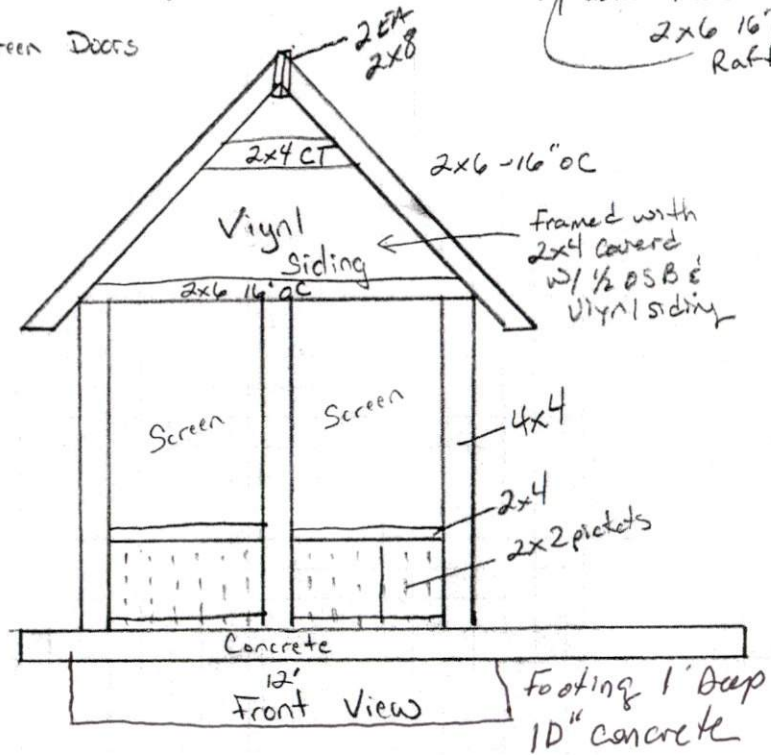 een Doors
2 EA
2x8
2x6 16"
Raft
2x4 CT
2x6 -16" OC
Viynl
Siding
framed with
2x4 coverd
w/ 1/2 OSB &
Viynl siding
2x6 16" OC
Screen
Screen
4x4
2x4
2x2 pickets
Concrete
12'
Front View
Footing 1' Deep
10" concrete